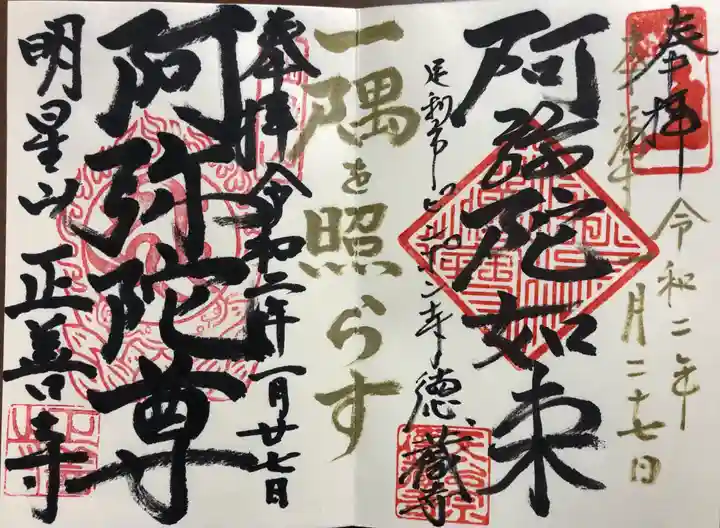 奉拝
令和二年
一月二十七日
阿弥陀如来
足利市
徳蔵寺
一隅を照らす
奉拝
令和二年一月廿七日
阿弥陀尊
明星山
正善寺